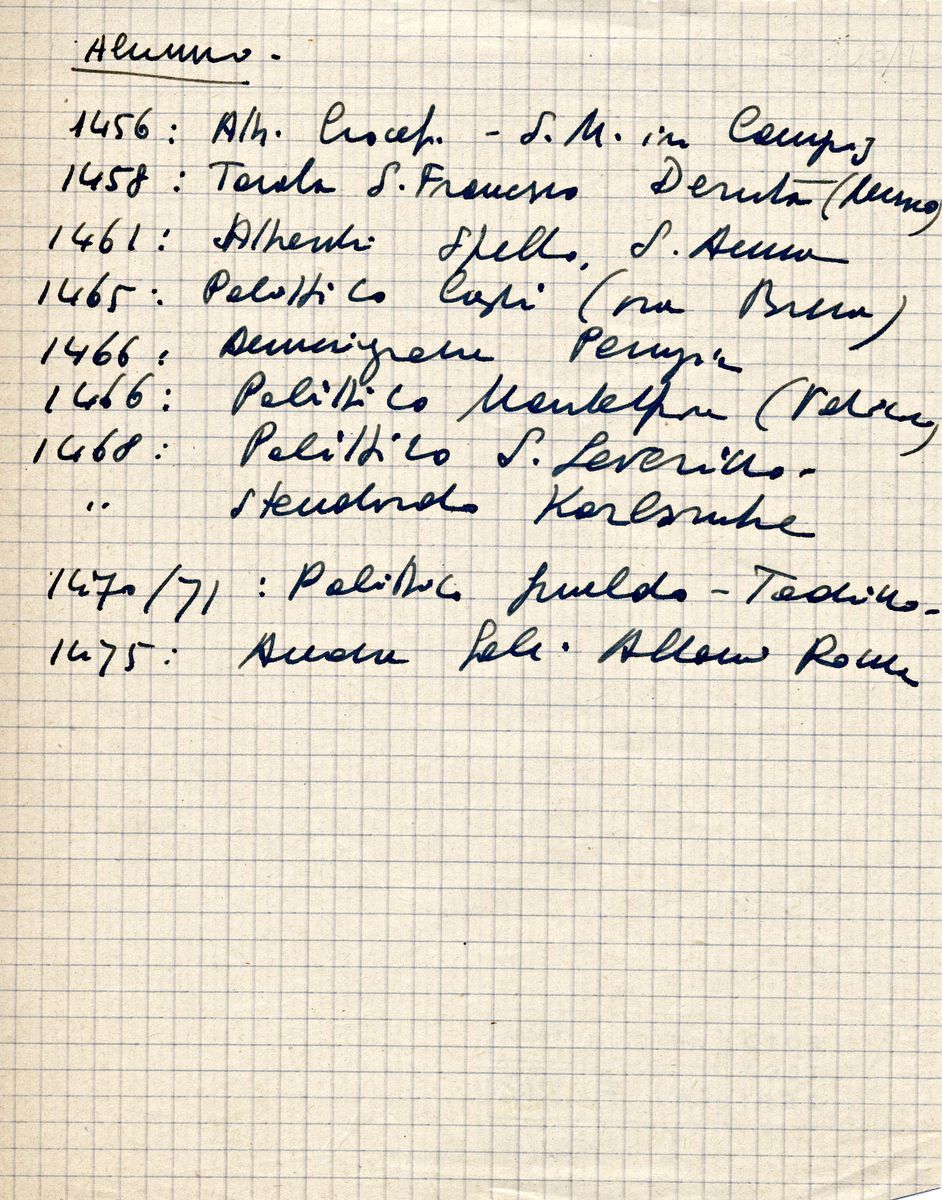 Alunno -
1456: Aff. Crocef. - S. M. in Campis
1458: Tavola S. Francesco Deruta (Museo)
1461: Affreschi Spello, S. Anna
1465: Polittico Cagli (ora Brera)
1466: Annunciazione Perugia
1466: Polittico Montelparo (Vatican)
1468: Polittico S. Severino -
" Stendardo Karlsruhe
1470/71: Polittico Gualdo - Tadino -
1475: Ancona Albani Rome